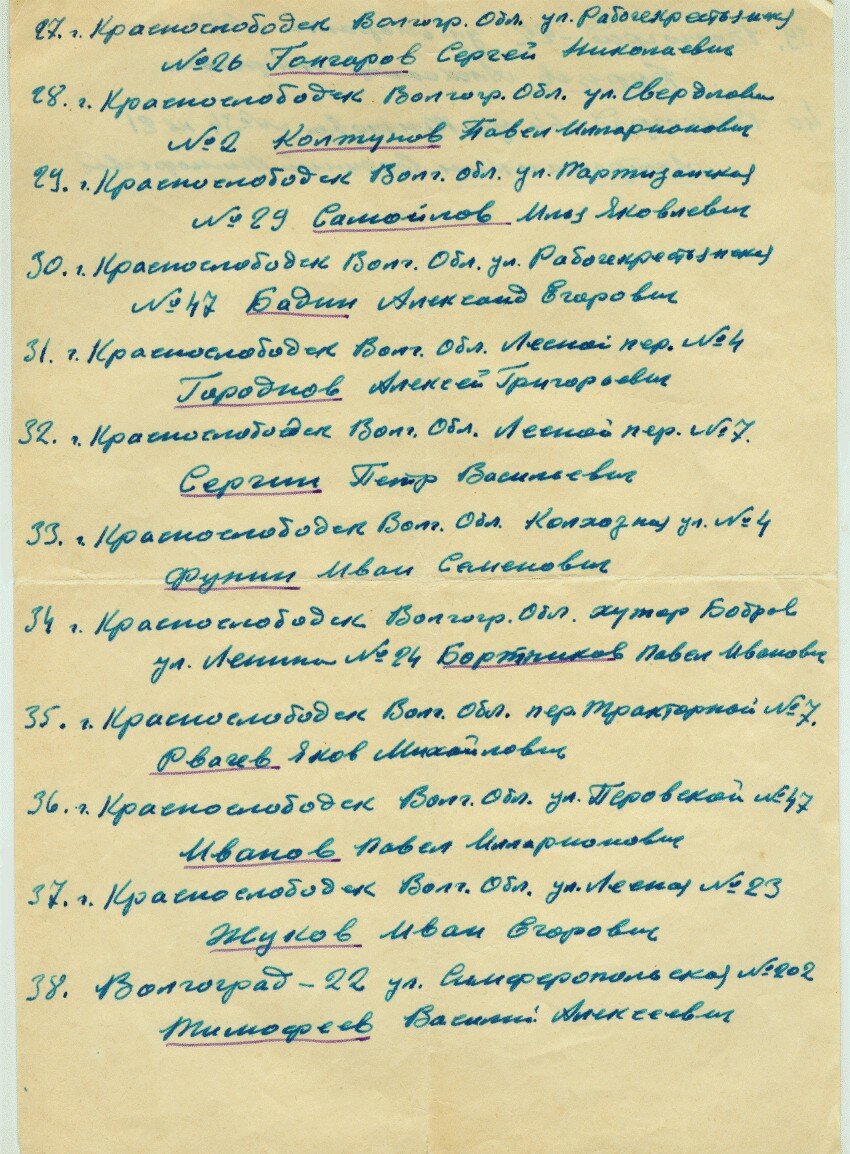 27. г. Краснослободск Волгогр. Обл. ул. Рабочекрестьянская
№26 Гончаров Сергей Николаевич
28. г. Краснослободск Волгогр. Обл. ул. Свердлова
№2 Колтунов Павел Илларионович
29. г. Краснослободск Волг. Обл. ул. Партизанская
№29 Самойлов Илья Яковлевич
30. г. Краснослободск Волг. Обл. ул. Рабочекрестьянская
№47 Бадин Александ Егорович
31. г. Краснослободск Волг. Обл. Лесной пер. №4
Городнов Алексей Григорьевич
32. г. Краснослободск Волг. Обл. Лесной пер. №7.
Сергин Петр Васильевич
33. г. Краснослободск Волг. Обл. Колхозная ул. №4
Фунин Иван Семенович
34 г. Краснослободск Волгогр. Обл. хутор Бобров
ул. Ленина №24 Бортников Павел Иванович
35. г. Краснослободск Волг. Обл. пер. Тракторной №7.
Рвачев Яков Михайлович
36. г. Краснослободск Волг. Обл. ул. Перовской №47
Иванов Павел Илларионович
37. г. Краснослободск Волг. Обл. ул. Лесная №23
Жуков Иван Егорович
38. Волгоград - 22 ул. Симферопольская №202
Тимофеев Василий Алексеевич